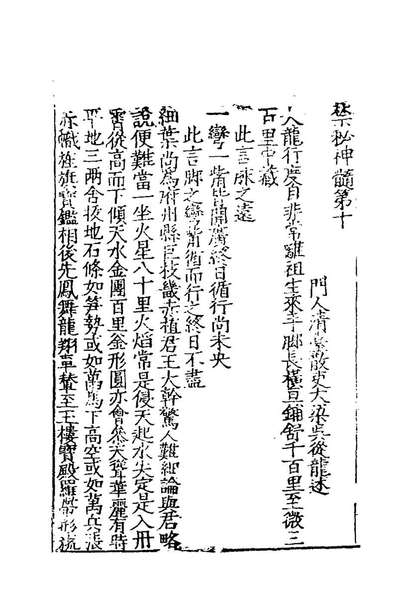 禁秘神髓第十
門人清臺散吏大梁吳從龍述
人龍行度自非常離祖生來手脚長橫亘鋪舒千百里至微三
百里中藏
此言脉之遠
一彎一背皆開廣終日循行尚未央
此言脚之彎背循而行之終日不盡
細葉尚為府州縣巨枝畿赤植君王大幹驚人難細論與君略
說便難當一坐火星八十里火焰常是侵天起水失定是入
霄從高而下傾天水金團百里金形圓亦會參天聳華麗有時
平地三兩舍拔地石條如笋勢或如萬馬下高空或如萬兵張
旂幟旌旗寶鑑相後先鳳舞龍翔車輦至玉樓寶殿羅帶形流